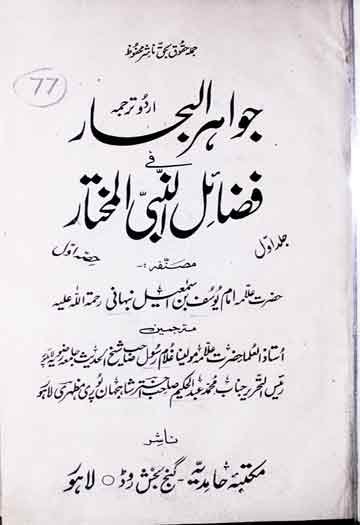 جملہ حقوق بحق ناشر محفوظ
77
اردو ترجمہ
جواہر البحار
فی
فضائل النبی المختار
جلد اول
حصہ اول
مصنفہ :-
حضرت علامہ امام یوسف بن اسمٰعیل نبہانی رحمۃ اللہ علیہ
مترجمین
استاذ العلماء حضرت علامہ مولینا غلام رسول صاحب شیخ الحدیث جامعہ رضویہ
رئیس التحریر جناب محمد عبد الحکیم صاحب اختر شاہجہانپوری مظہری لاہور
ناشر
مکتبہ حامدیہ - گنج بخش روڈ ○ لاہور